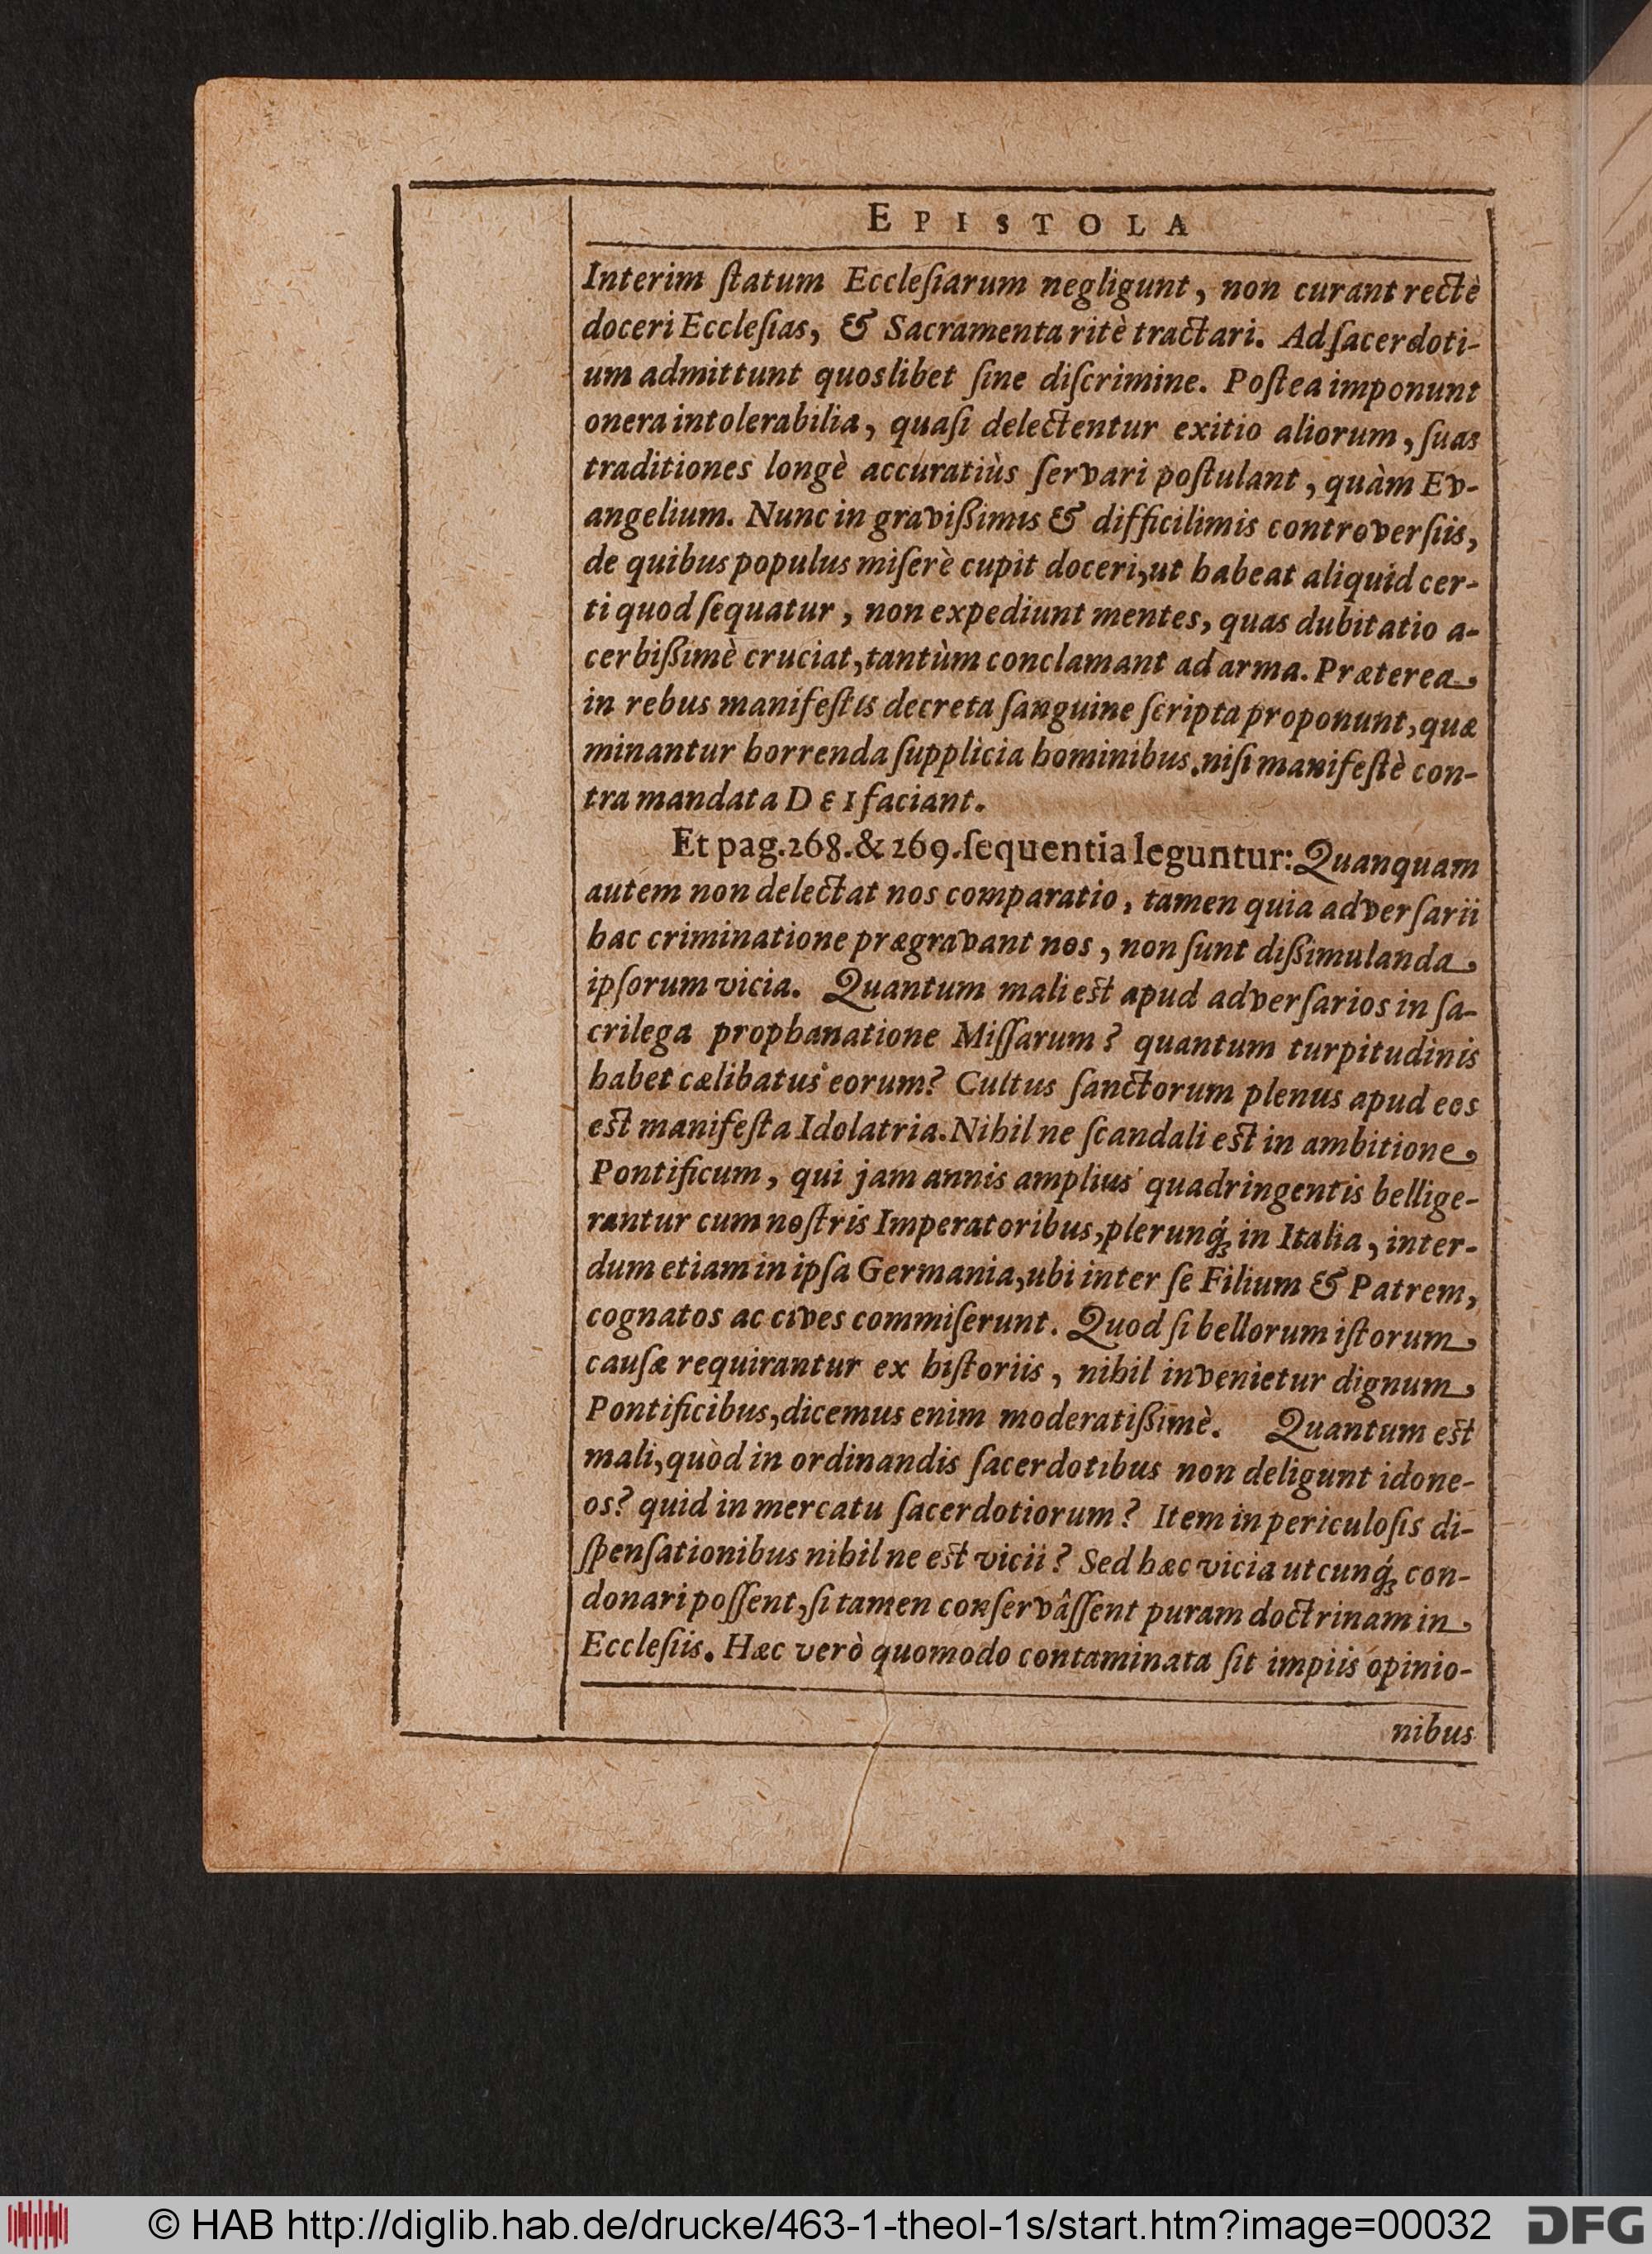 EPISTOLA
Interim ſtatum Eccleſiarum negligunt, non curant rectè
doceri Eccleſias, & Sacramenta ritè tractari. Ad ſacerdoti-
um admittunt quoslibet ſine diſcrimine. Poſtea imponunt
onera intolerabilia, quaſi delectentur exitio aliorum, ſuas
traditiones longè accuratiùs ſervari poſtulant, quàm Ev-
angelium. Nunc in graviſſimis & difficilimis controverſiis,
de quibus populus miſerè cupit doceri, ut habeat aliquid cer-
ti quod ſequatur, non expediunt mentes, quas dubitatio a-
cerbiſſimè cruciat, tantùm conclamant ad arma. Præterea
in rebus manifeſtis decreta ſanguine ſcripta proponunt, quæ
minantur horrenda ſupplicia hominibus, niſi manifeſtè con-
tra mandata DEI faciant.
Et pag. 268. & 269. ſequentia leguntur: Quanquam
autem non delectat nos comparatio, tamen quia adverſarii
hac criminatione prægravant nos, non ſunt diſſimulanda
ipſorum vicia. Quantum mali eſt apud adverſarios in ſa-
crilega prophanatione Miſſarum? quantum turpitudinis
habet cælibatus eorum? Cultus ſanctorum plenus apud eos
eſt manifeſta Idolatria. Nihil ne ſcandali eſt in ambitione
Pontificum, qui jam annis amplius quadringentis bellige-
rantur cum noſtris Imperatoribus, plerunq́; in Italia, inter-
dum etiam in ipſa Germania, ubi inter ſe Filium & Patrem,
cognatos ac cives commiſerunt. Quod ſi bellorum iſtorum
cauſæ requirantur ex hiſtoriis, nihil invenietur dignum
Pontificibus, dicemus enim moderatiſſimè. Quantum eſt
mali, quòd in ordinandis ſacerdotibus non deligunt idone-
os? quid in mercatu ſacerdotiorum? Item in periculoſis di-
ſpenſationibus nihil ne eſt vicii? Sed hæc vicia utcunq́; con-
donari poſſent, ſi tamen conſervâſſent puram doctrinam in
Eccleſiis. Hæc verò quomodo contaminata ſit impiis opinio-
nibus
© HAB http://diglib.hab.de/drucke/463-1-theol-1s/start.htm?image=00032
DFG